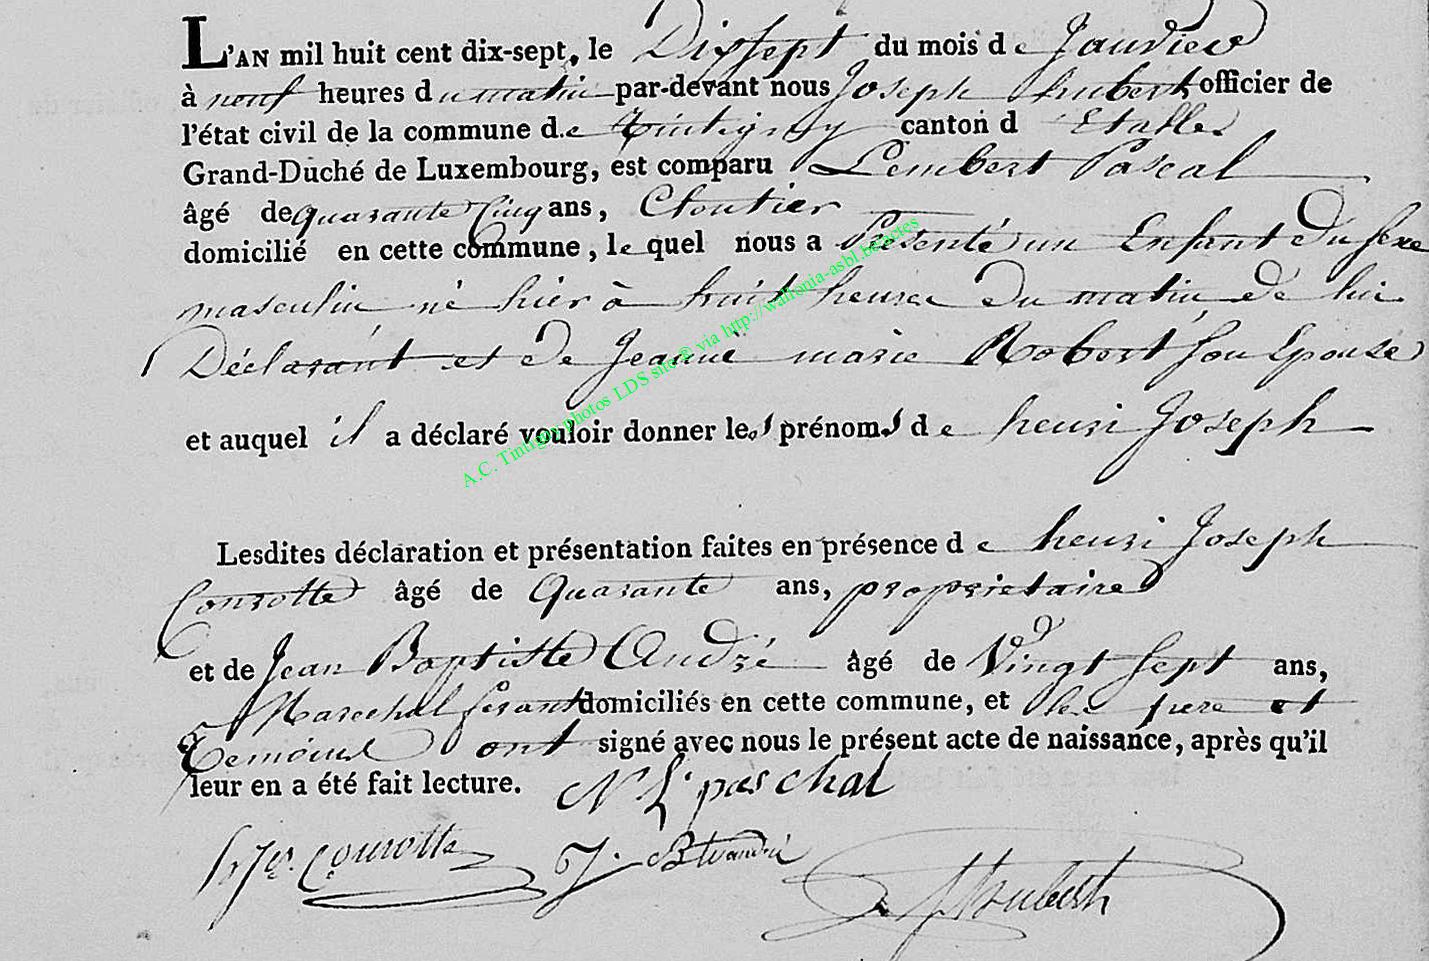 L'AN mil huit cent dix-sept, le Dixsept du mois de Janvier
à neuf heures du matin par-devant nous Joseph hubert officier de
l'état civil de la commune de Tintigny canton d Etalle
Grand-Duché de Luxembourg, est comparu Lembert Pascal
âgé de quarante Cinq ans, Cloutier
domicilié en cette commune, le quel nous a Présenté un Enfant du sexe
masculin né hier à huit heures du matin de lui
Déclarant et de Jeanne marie Robert son Epouse
et auquel il a déclaré vouloir donner les prénoms de henri Joseph
Lesdites déclaration et présentation faites en présence de henri Joseph
Courotte âgé de Quarante ans, propriétaire
et de Jean Baptiste André âgé de Vingt sept ans,
Marechal ferant domiciliés en cette commune, et les pere et
temoins ont signé avec nous le présent acte de naissance, après qu'il
leur en a été fait lecture. N L paschal
Courotte J. Bt andré
Hubert
A.C. Tintigny photos LDS site © via http://wallonia-asbl.be/actes